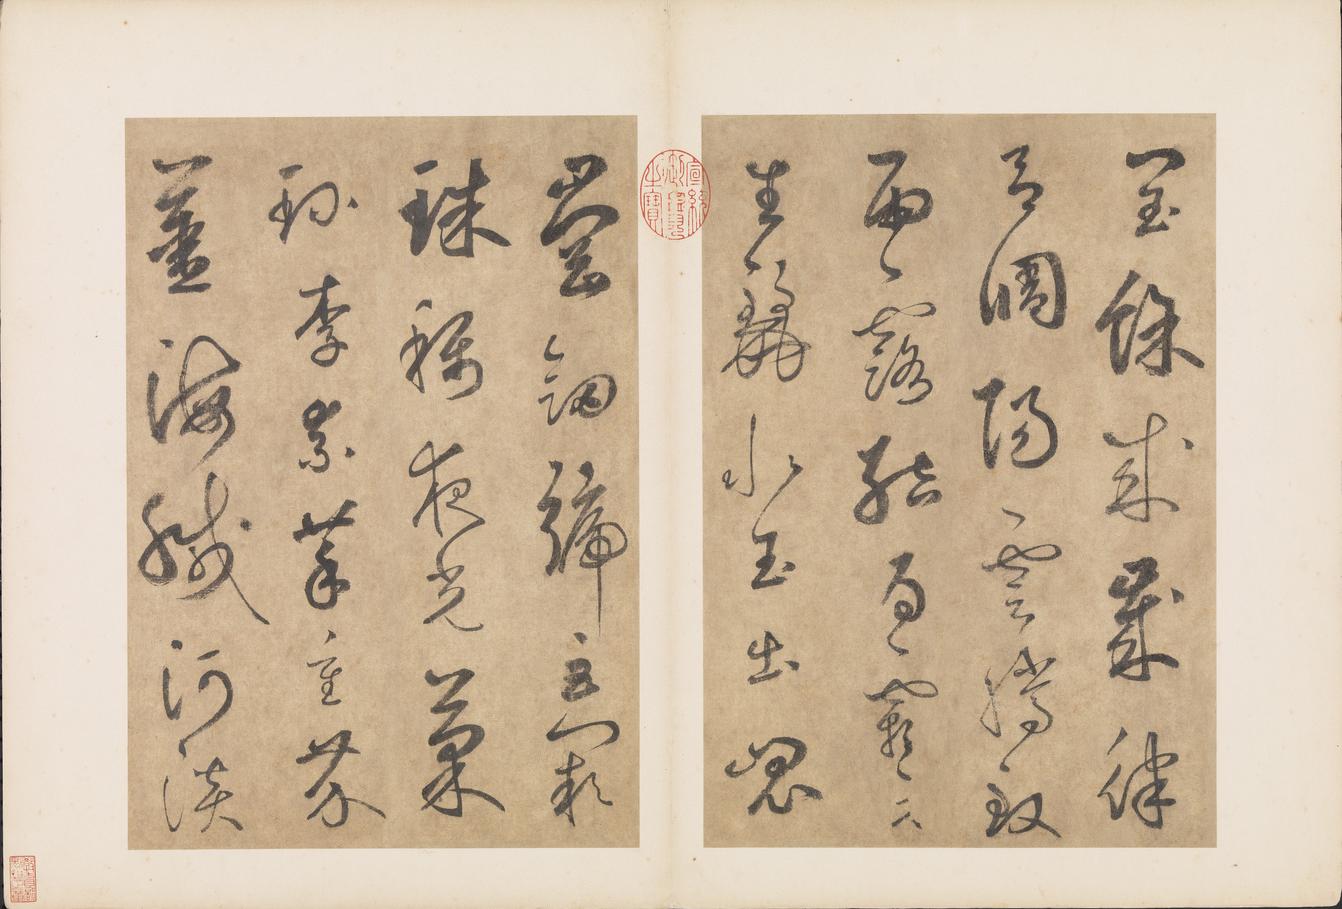 閏餘成歲律
呂調陽雲騰致
雨露結為霜金
生麗水玉出崑
崗劍號巨闕
珠稱夜光菓
珍李柰菜重芥
薑海鹹河淡